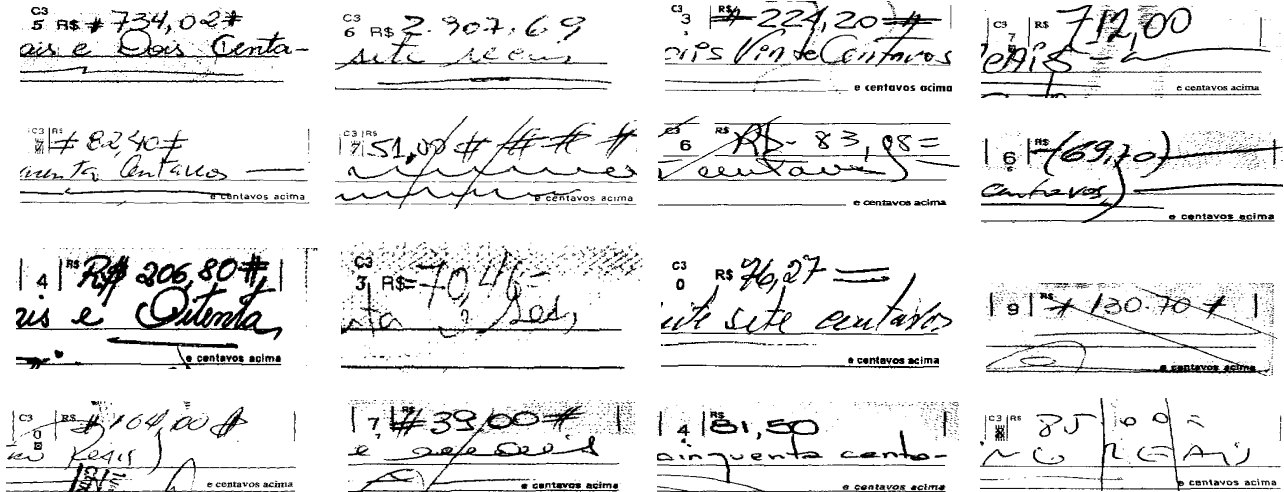 C3
5 R$ # 734,02 #
ais e Dois Centa-
C3
6 R$ 2.907,69
sete reais
C3
3 # 224,20 #
ais Vinte Centavos
e centavos acima
C3 R$
7 712,00
eais
e centavos acima
C3 R$
# 82,40 #
Centavos
e centavos acima
C3 R$
7 51,00 # # # #
e centavos acima
C3 R$
6 R$- 83,98=
centavos
e centavos acima
6 R$ (69,70)
centavos,
e centavos acima
4 R$ R$ 206,80 #
ais e Oitenta,
e centavos acima
C3
3 R$ =70,46=
ta
C3
0 R$ 76,27
te sete centavos
e centavos acima
9 R$ # 130.70 #
e centavos acima
C3 R$
0 # 164,00 #
Reais
e centavos acima
7 R$ # 39,00 #
e
e centavos acima
4 R$ 81,50
cinquenta centa-
e centavos acima
C3 R$
85,00=
NCO REAIS
e centavos acima